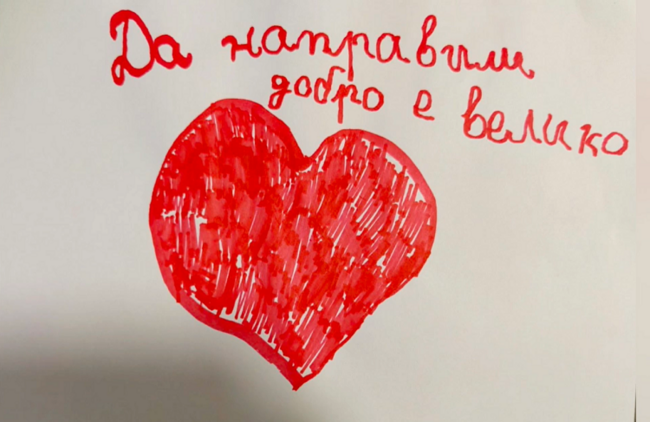 Да направим
добро е велико